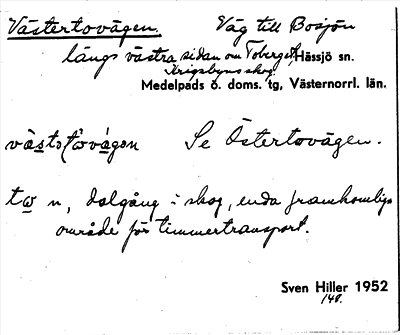 Västertovägen. Väg till Bosjön
längs västra sidan om Toberget, Hässjö sn.
Krigsbyns skog.
Medelpads ö. doms. tg, Västernorrl. län.
Se Östertovägen.
n, dalgång i skog, enda framkomliga
område för timmertransport.
Sven Hiller 1952
140.